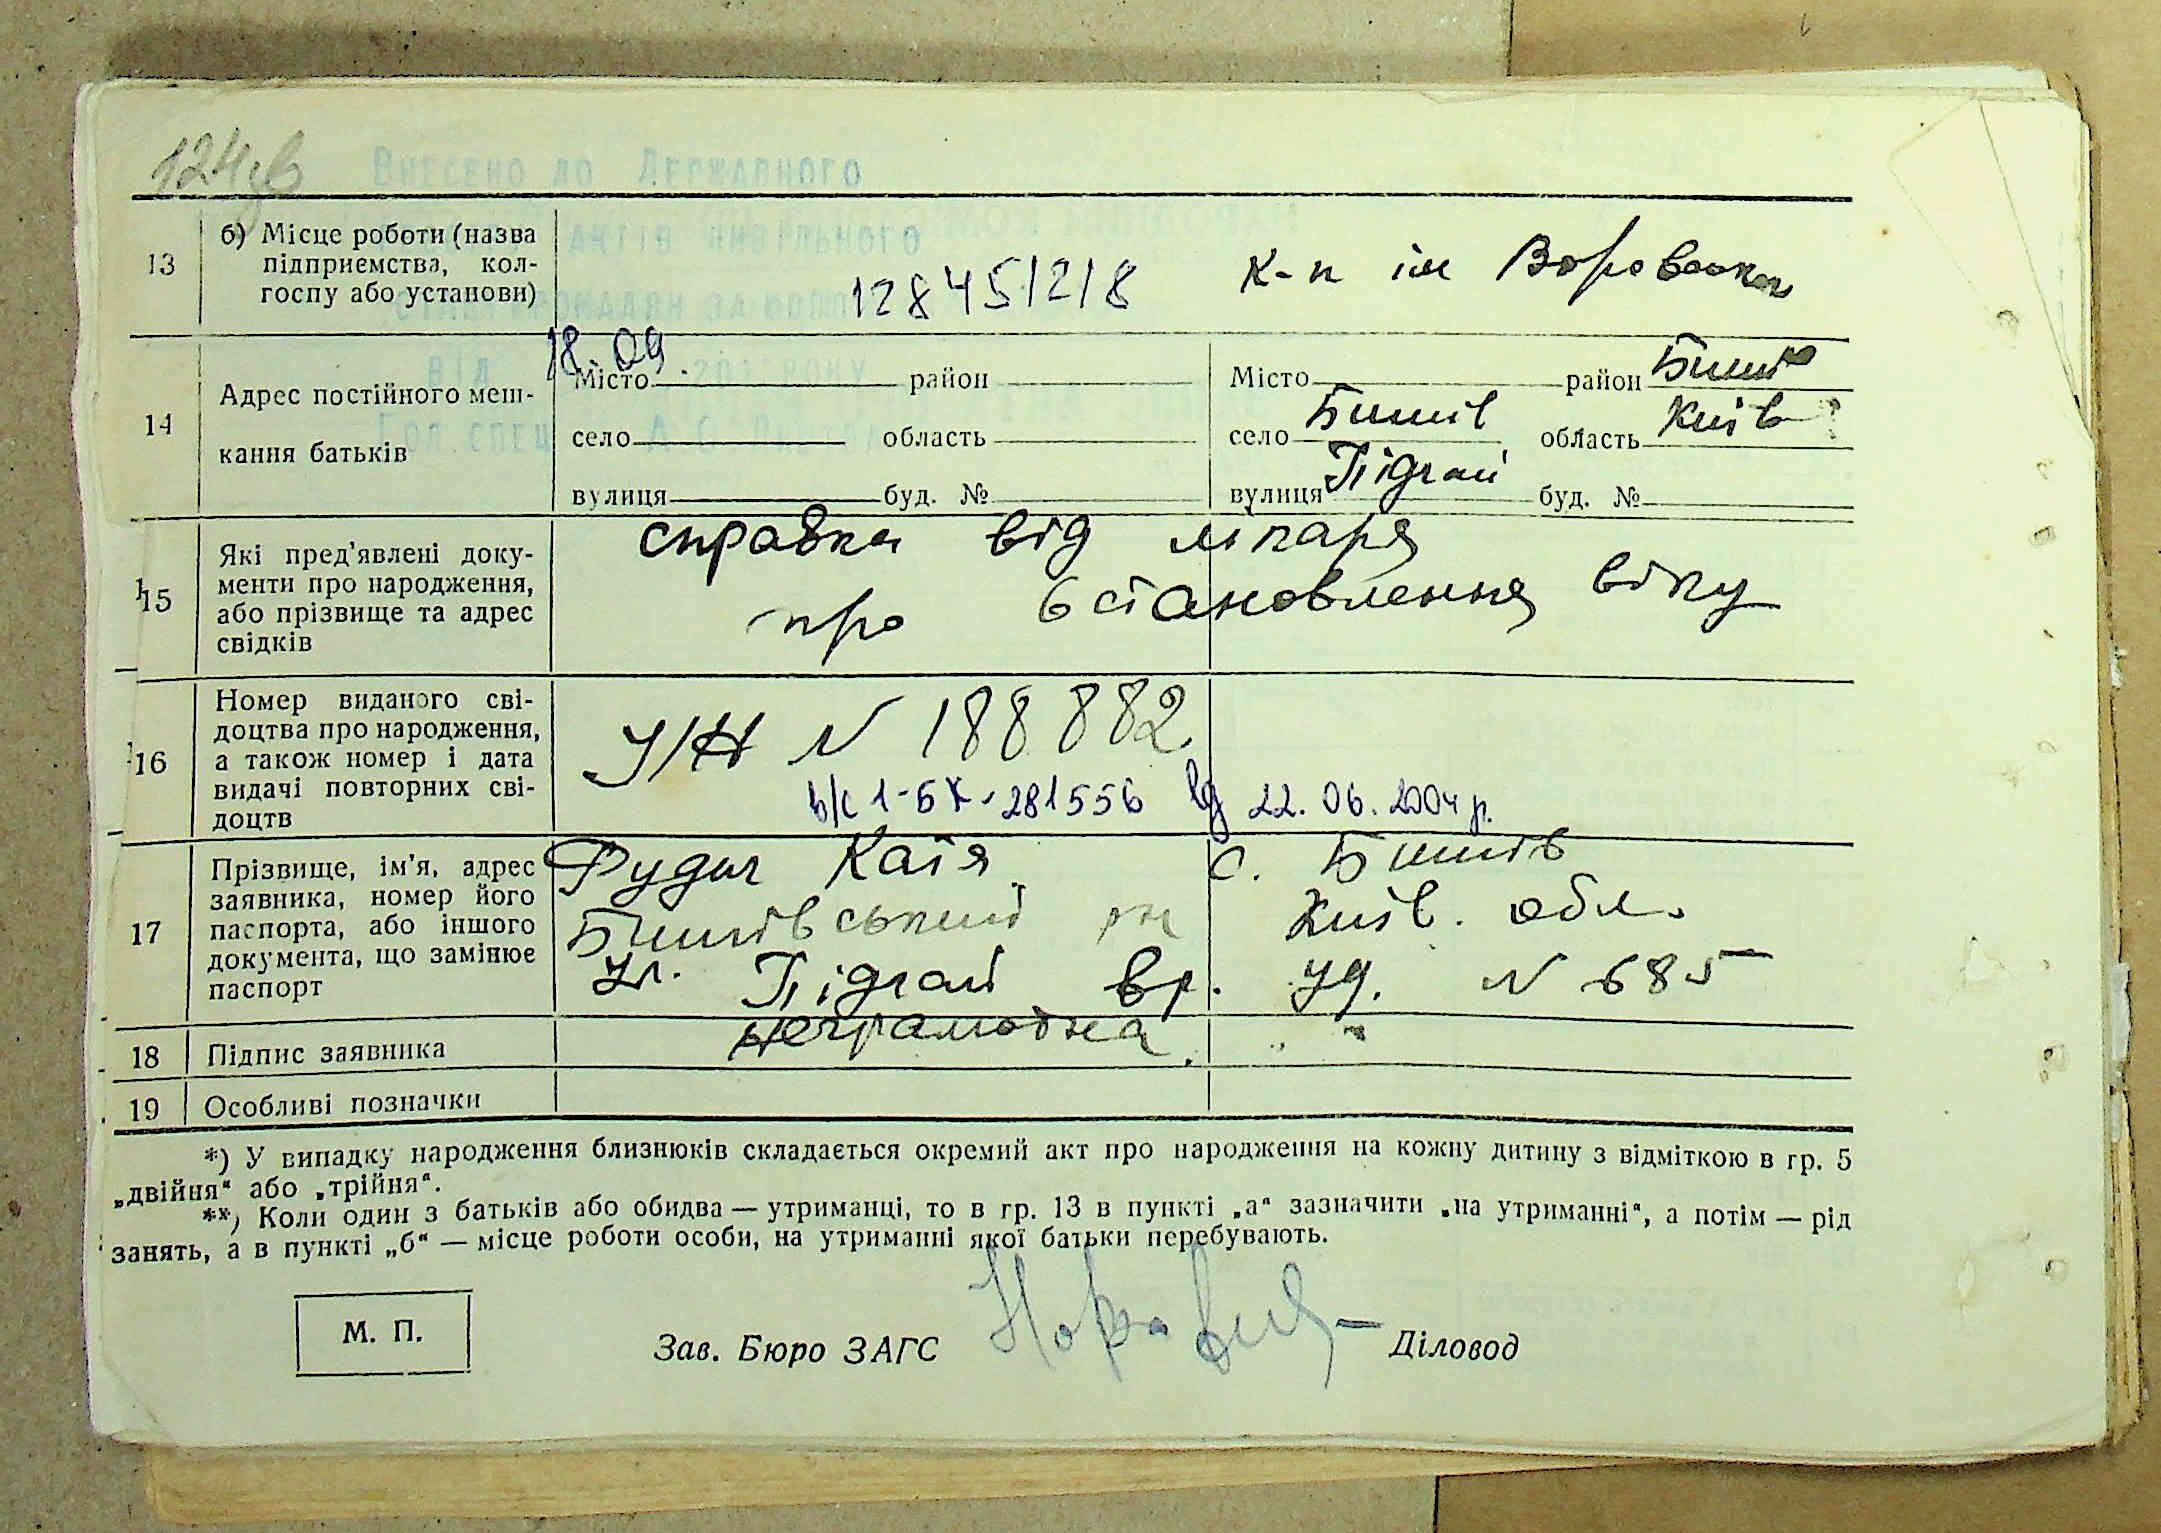 124 зв
Внесено до Державного
актів цивільного
стану громадян за
від 18.09. 201 року
Гол. спец. А.О.
13 б) Місце роботи (назва підприємства, кол-
госпу або установи)
12845/218 к-п ім Воровського
14 Адрес постійного меш-
кання батьків
Місто район Місто район Бишів
село область село Бишів область Київ
вулиця буд. № вулиця Підгай буд. №
15 Які пред'явлені доку-
менти про народження,
або прізвище та адрес
свідків
справка від лікаря
про встановлення віку
16 Номер виданого сві-
доцтва про народження,
а також номер і дата
видачі повторних сві-
доцтв
У/Н N 188882
п/с 1-БК-281556 від 22.06.2004 р.
17 Прізвище, ім'я, адрес
заявника, номер його
паспорта, або іншого
документа, що замінює
паспорт
Рудич Катя с. Бишів
Бишівський рн Київ. обл.
ул. Підгай вр. уд. N 685
18 Підпис заявника неграмотна.
19 Особливі позначки
*) У випадку народження близнюків складається окремий акт про народження на кожну дитину з відміткою в гр. 5
„двійня“ або „трійня“.
**) Коли один з батьків або обидва — утриманці, то в гр. 13 в пункті „а“ зазначити „на утриманні“, а потім — рід
занять, а в пункті „б“ — місце роботи особи, на утриманні якої батьки перебувають.
М. П. Зав. Бюро ЗАГС Діловод